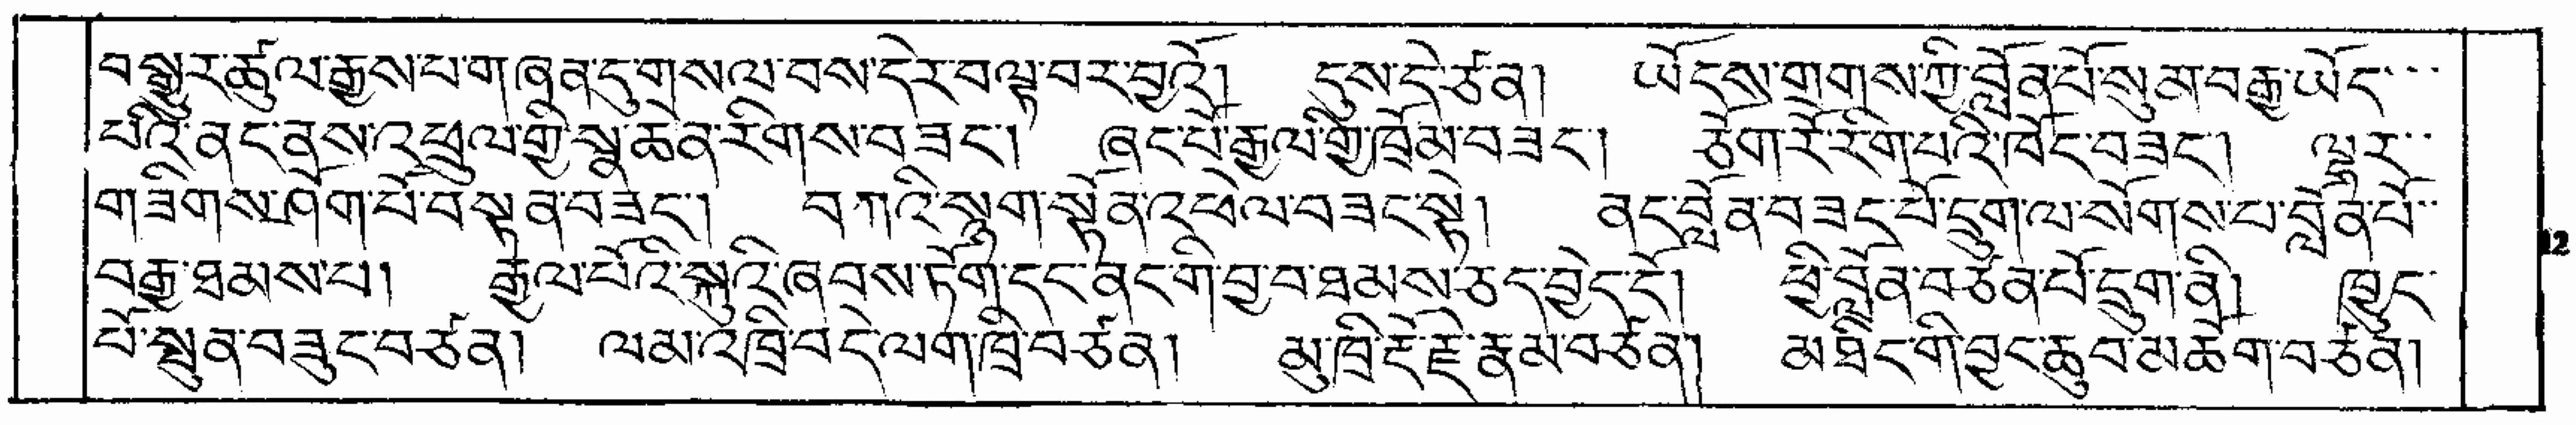 བསྒྱུར་ཚུལ་རྒྱས་པ་གཞན་དུ་གསལ་བས་དེར་བལྟ་བར་བྱའོ། དུས་དེ་ཙན། ཡོངས་གྲགས་ཀྱི་བློན་པོ་སུམ་བརྒྱ་ཡོད་་་
པའི་ནང་ནས་འཕྲུལ་གྱི་སྣ་ཆེན་རིགས་བཟང་། ཞང་པོ་རྒྱལ་གྱི་ཁྲོམ་བཟང་། ཅོག་རོ་རིག་པའི་ཁོང་བཟང་། ལྷར་་
གཟིགས་ཤོག་པོ་བསྟན་བཟང་། བཀའི་སྟག་སྟོན་འཕེལ་བཟང་སྟེ། ནང་བློན་བཟང་པོ་དྲུག་ལ་སོགས་པ་བློན་པོ་་
བརྒྱ་ཐམས་པ། རྒྱལ་པོའི་སྐུའི་ཞབས་ཏོག་དང་ནང་གི་བྱ་བ་ཐམས་ཅད་བྱེད་དོ། ཕྱི་བློན་བཙན་པོ་དྲུག་ནི། ཁྱུང་
པོ་སྤུན་བཟུང་བཙན། ལམ་འཁྲི་བདེ་ལག་ཁྲི་བཙན། མུ་ཁྲི་རྡོ་རྗེ་རྣམ་བཙན། མཐིང་གི་བྱང་ཆུབ་མཆོག་བཙན།
12